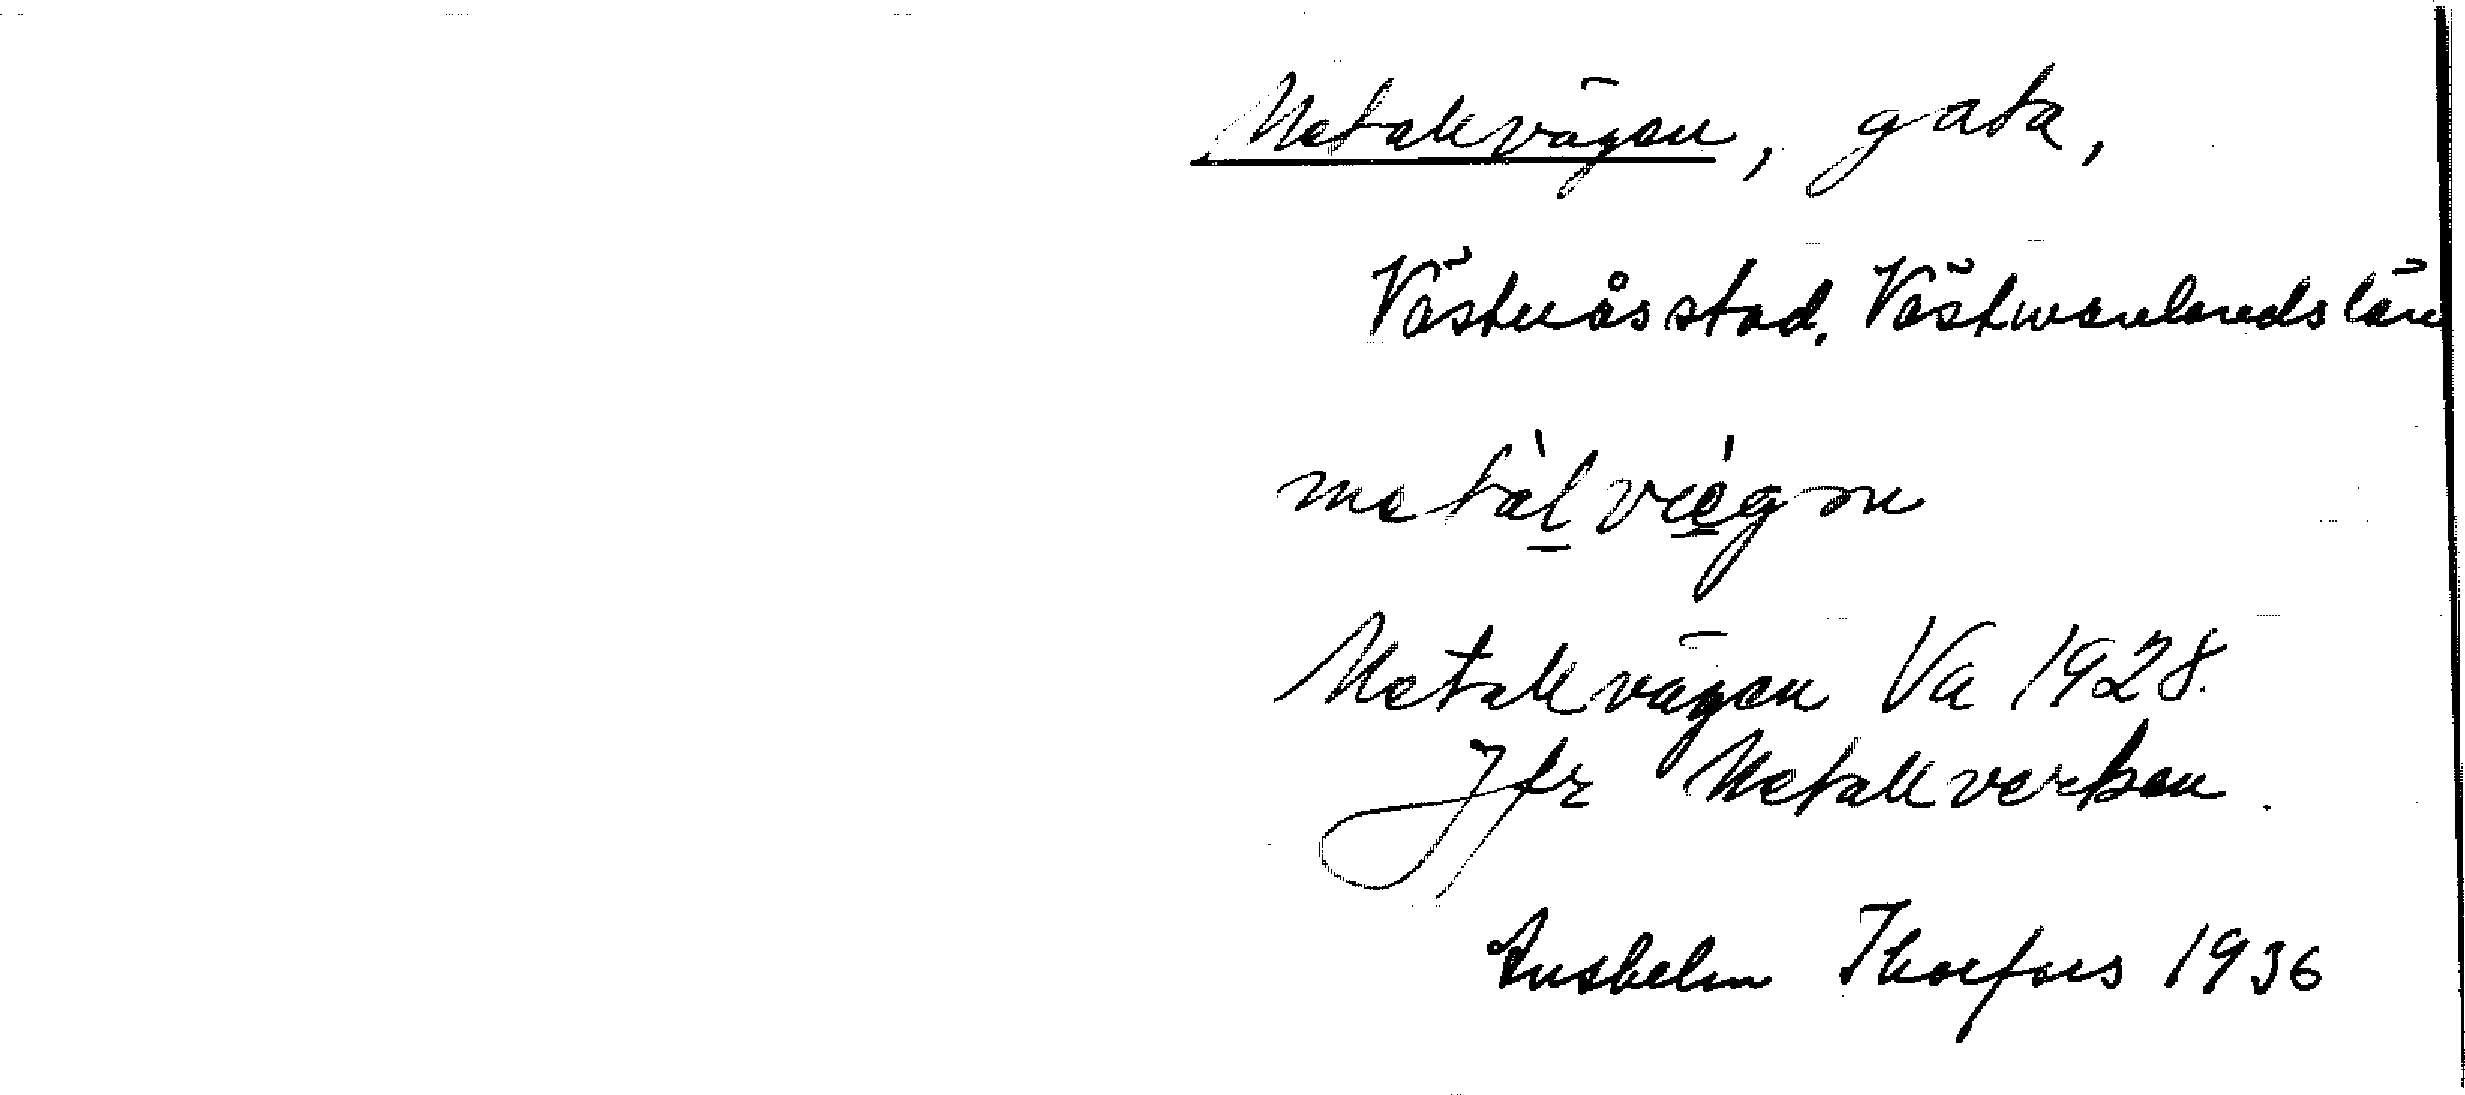 Metallvägen, gata,
Västerås stad, Västmanlands län
metàlvæ̀gen
Metallvägen Va 1928.
Jfr Metallverken.
Anshelm Thorfors 1936